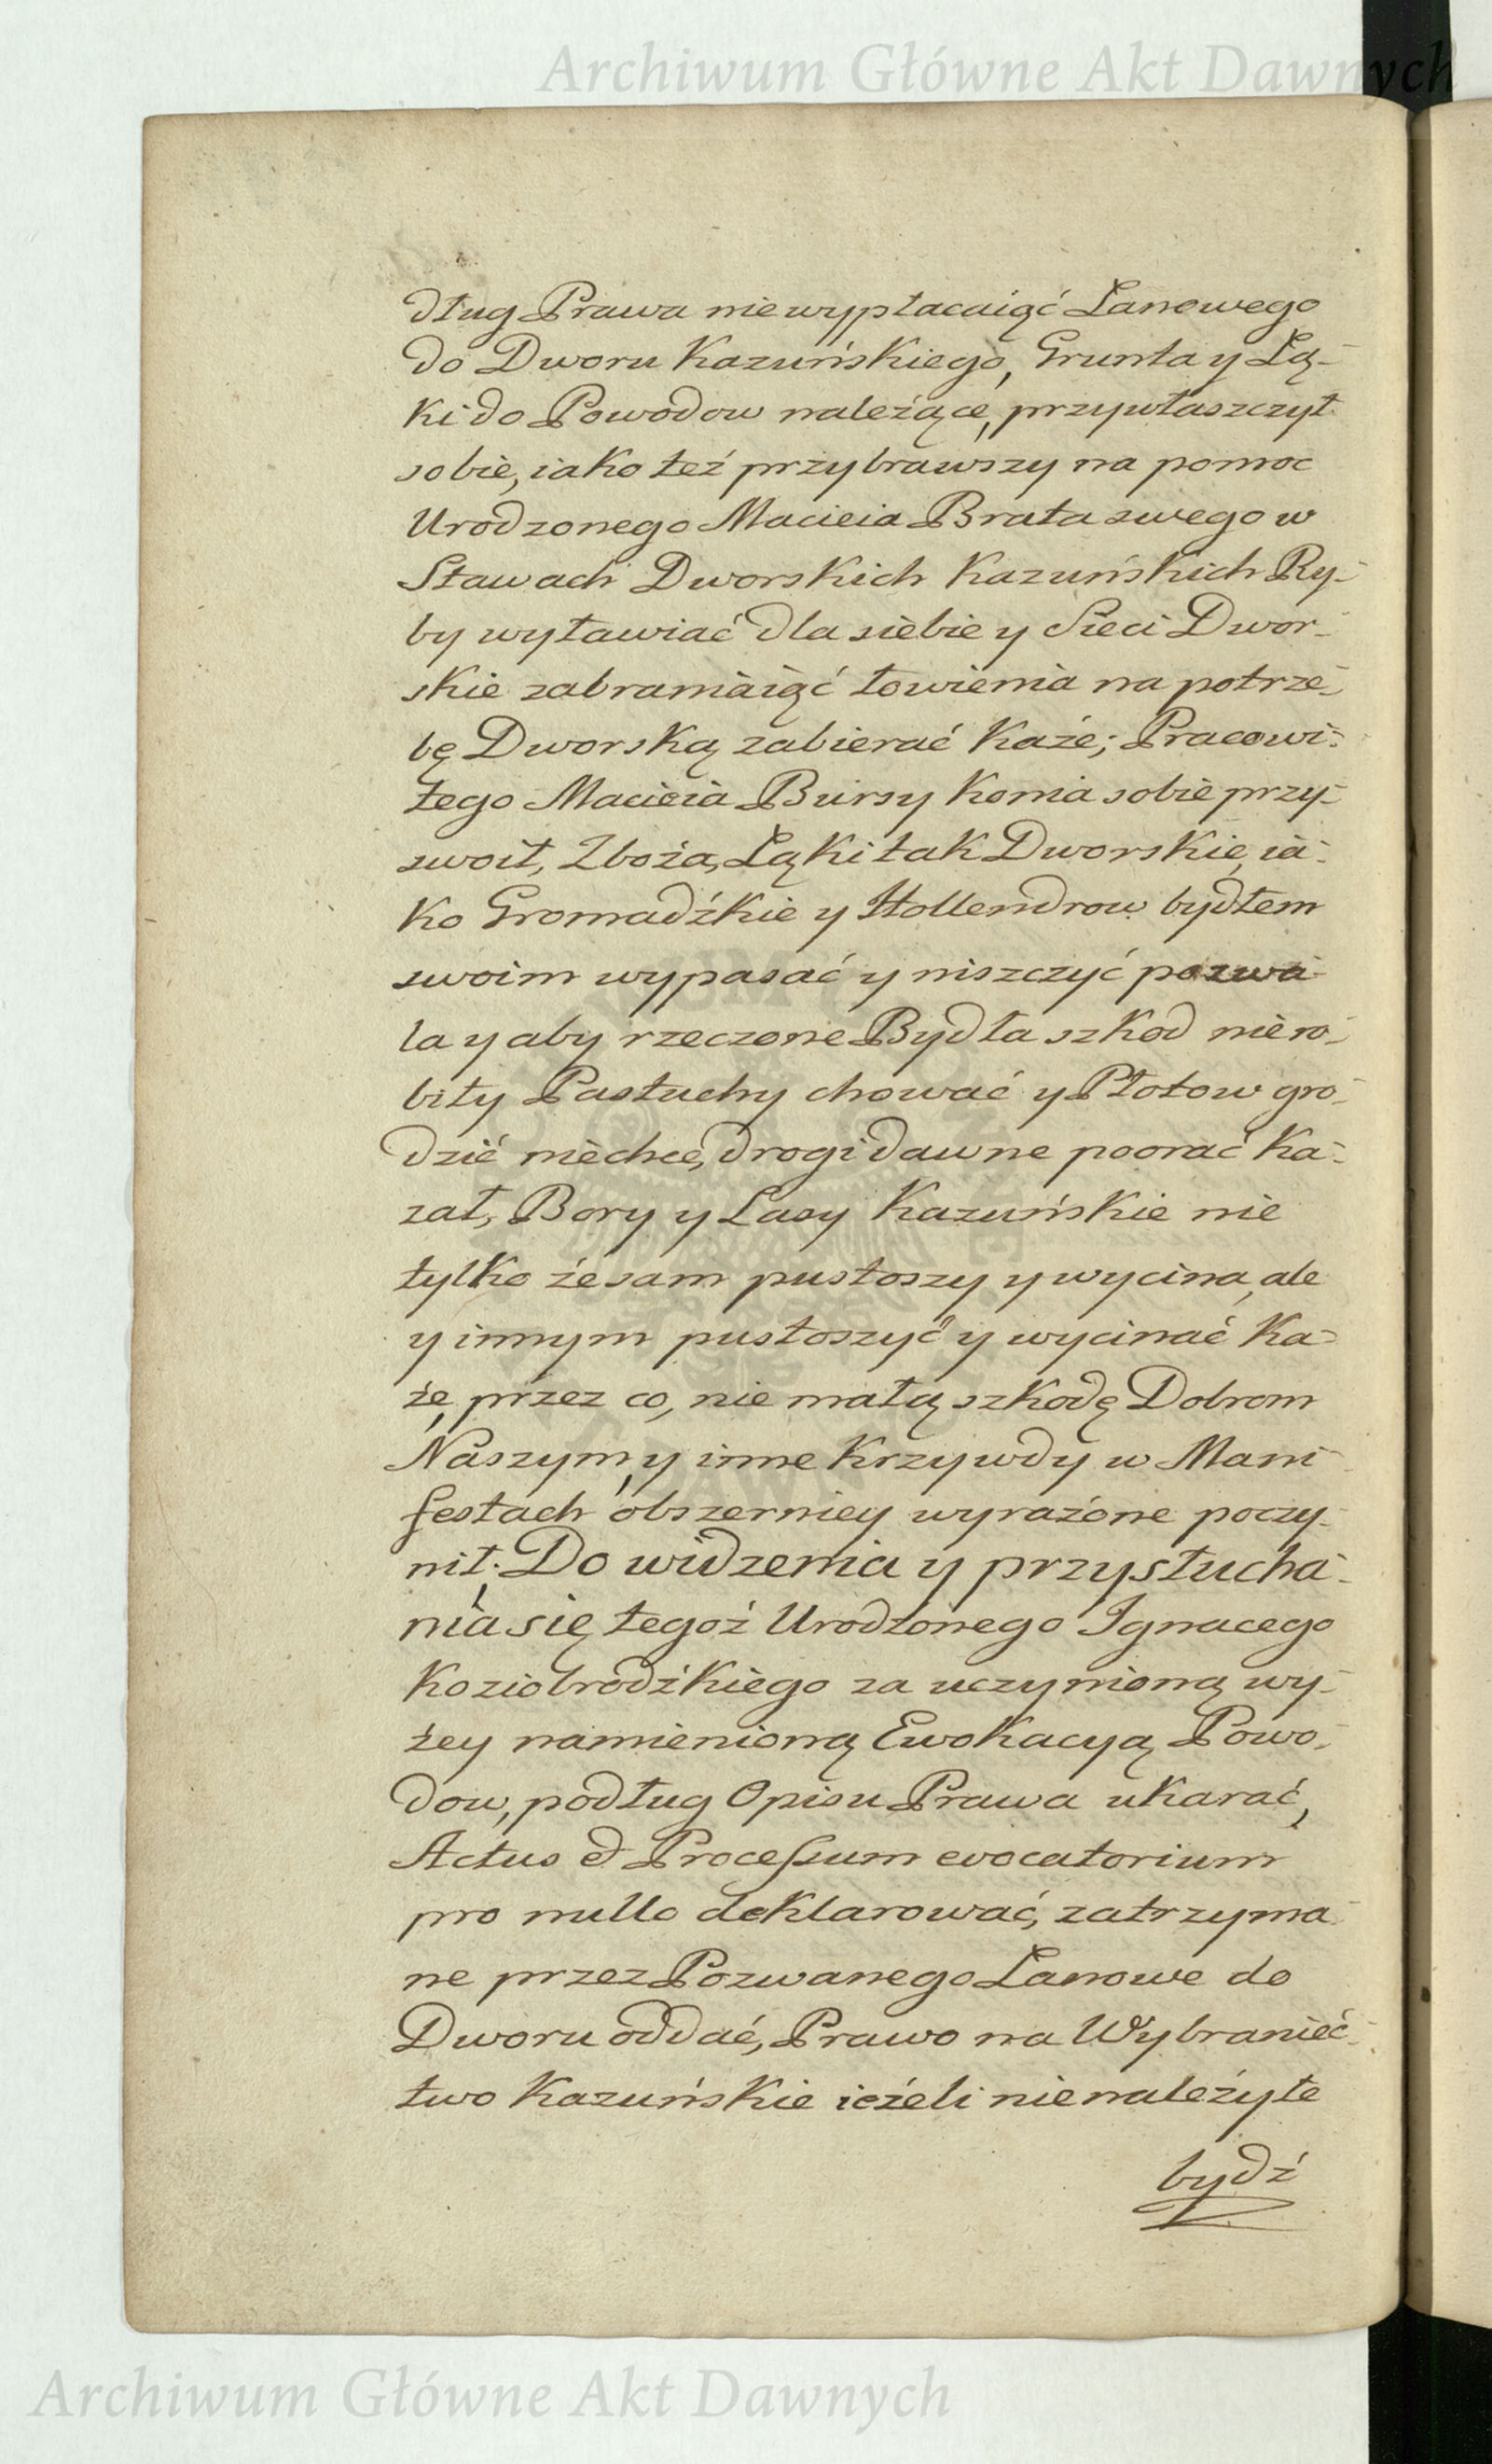 Archiwum Główne Akt Dawnych
dług Prawa nie wypłacaiąć Łanowego
do Dworu Kazuńskiego, Grunta y Łą-
ki do Powodow należące, przywłaszczył
sobie, iako też przybrawszy na pomoc
Urodzonego Macieia Brata swego w
Stawach Dworskich Kazuńskich Ry-
by wyławiać dla siebie y Sieci Dwor-
skie zabraniaiąć łowienia na potrze-
bę Dworską zabierać każe; Pracowi-
tego Macieia Bursy konia sobie przy-
swoił, Zboża, Łąki tak Dworskie, ia-
ko Gromadźkie y Hollendrow bydłem
swoim wypasać y niszczyć pozwa-
la y aby rzeczone Bydła szkod niero-
biły Pastuchy chować y Płotow gro-
dzić niechce, drogi dawne poorać ka-
zał, Bory y Lasy Kazuńskie nie
tylko że sam pustoszy y wycina, ale
y innym pustoszyć y wycinać Ka-
że, przez co, nie małą szkodę Dobrom
Naszym, y inne Krzywdy w Mani-
festach obszerniey wyrażone poczy-
nił; Do widzenia y przysłucha-
nia się tegoż Urodzonego Ignacego
Koziobrodźkiego za uczynioną wy-
żey namienioną Ewokacyą Powo-
dow, podług Opisu Prawa ukarać,
Actus & Processum evocatorium
pro nullo deklarować, zatrzyma-
ne przez Pozwanego Łanowe do
Dworu oddać, Prawo na Wybranieć-
two Kazuńskie ieżeli nienależyte
bydź
Archiwum Główne Akt Dawnych